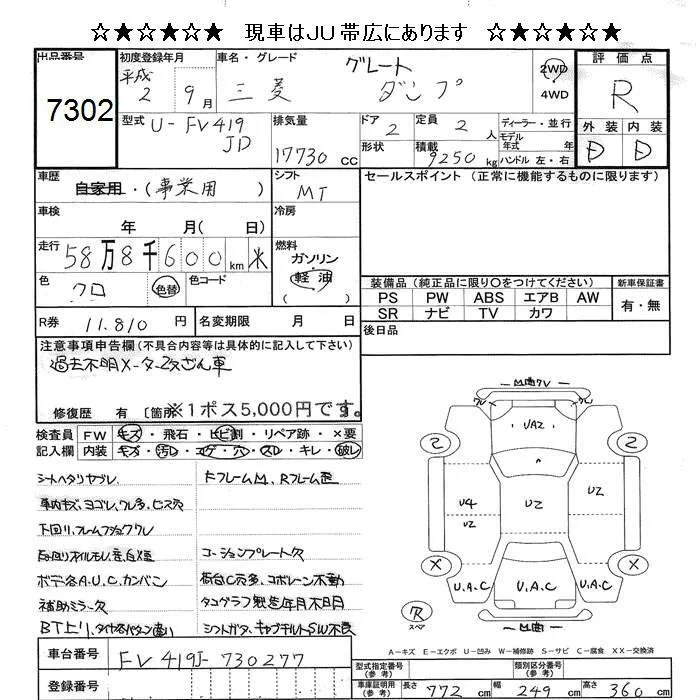 ☆★☆★☆★ 現車はJU帯広にあります ☆★☆★☆★
出品番号 初度登録年月 車名・グレード 評価点
7302 平成 2 9月 三菱 グレート ダンプ 2WD 4WD R
型式 U-FV419JD 排気量 17730 cc ドア 2 定員 2 人 ディーラー・並行 外装 内装
形状 積載 9250 kg モデル年式 年式 ハンドル 左・右 D D
車歴 自家用・(事業用) シフト MT セールスポイント (正常に機能するものに限ります)
車検 年 月( 日) 冷房
走行 58万8千600km 燃料 ガソリン 軽油 ( )
色 クロ 色替 色コード 装備品(純正品に限り○をつけてください) 新車保証書
PS PW ABS エアB AW 有・無
SR ナビ TV カワ
R券 11.810円 名変期限 月 日 後日品
注意事項申告欄(不具合内容等は具体的に記入して下さい)
過去不明メーター改ざん車
修復歴 有 〔箇所 ※1ポス5,000円です。
検査員 FW キズ・飛石・ヒビ割・リペア跡・×要
記入欄 内装 キズ・汚レ・コゲ・穴・スレ・キレ・破レ
シートヘタリヤブレ、 Fフレーム凹、Rフレーム歪
車内キズ、ヨゴレ、ワレ多、ビス穴
下回リ、フレームフショククサレ
コーションプレート欠
ボデー各A.U.C.カンバン 荷台C穴多、コボレーン不動
補助ミラー欠 タコグラフ製造年月不明
BT上リ、タイヤ各パタン違い シフトガタ、キャブチルトSW不良
凹凹クV
クレ クレ
UA2
2 2
U4 U2 U2 U2
X X
U.A.C U.A.C U.A.C
R スペア
凹凹
A-キズ E-エクボ U-凹み W-補修跡 S-サビ C-腐食 XX-交換済
車台番号 FV419J-730277
登録番号
型式指定番号(参考) 類別区分番号(参考)
車庫証明用(参考) 長さ 772 cm 幅 249 cm 高さ 360 cm